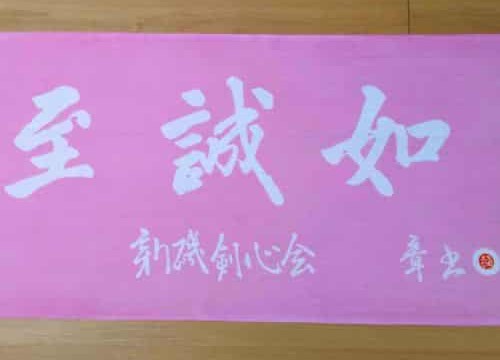 至誠如
新磯剣心会 章書